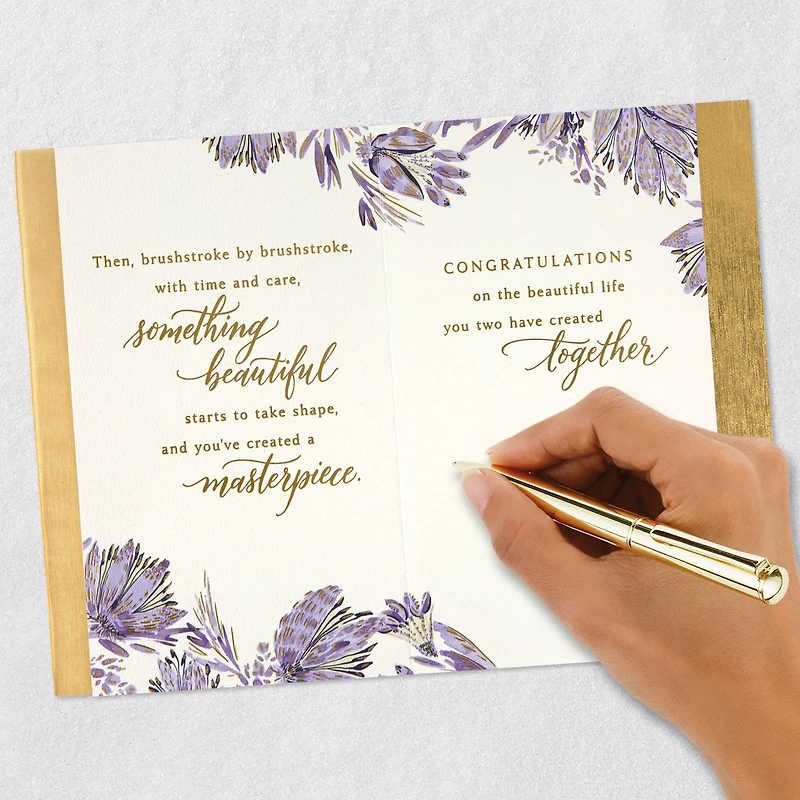 Then, brushstroke by brushstroke,
with time and care,
something
beautiful
starts to take shape,
and you've created a
masterpiece.
CONGRATULATIONS
on the beautiful life
you two have created
together.